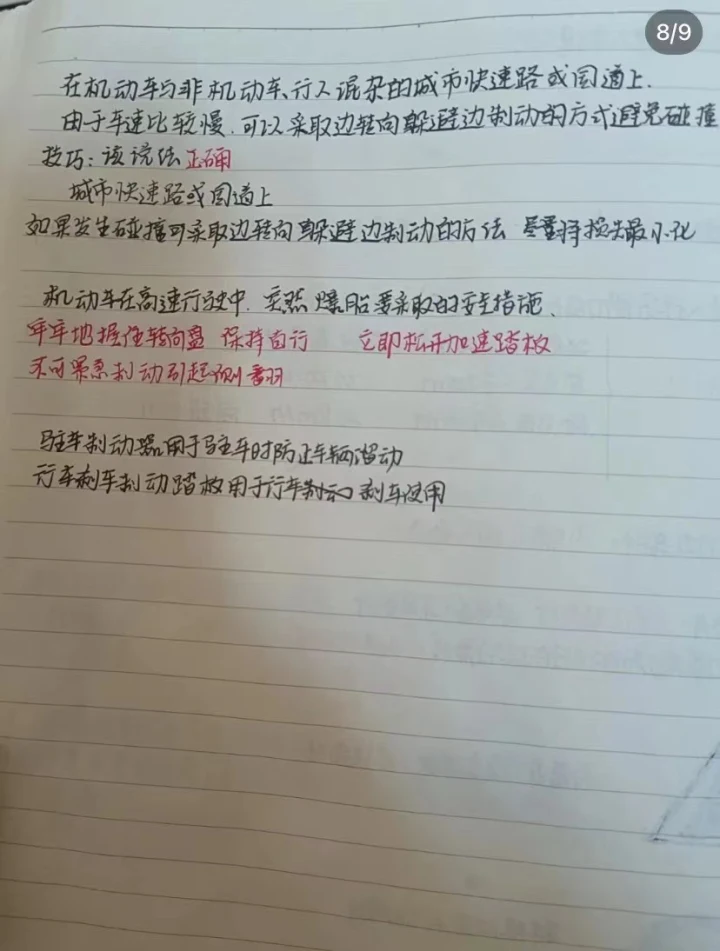 8/9
在机动车与非机动车、行人混杂的城市快速路或国道上.
由于车速比较慢.可以采取边转向躲避边制动的方式避免碰撞
技巧：该说法正确
城市快速路或国道上
如果发生碰撞可采取边转向躲避边制动的方法 尽量将损失最小化
机动车在高速行驶中.突然爆胎要采取的安全措施.
牢牢地握住转向盘 保持直行 立即松开加速踏板
不可紧急制动引起侧翻
驻车制动器用于驻车时防止车辆溜动
行车刹车制动踏板用于行车制动 刹车使用